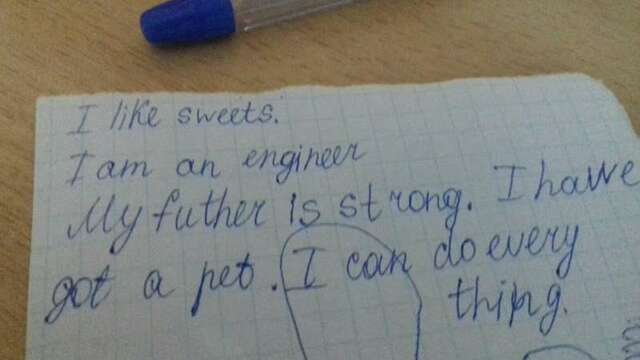 I like sweets.
I am an engineer
My futher is strong. I have
got a pet. I can do every
thing.